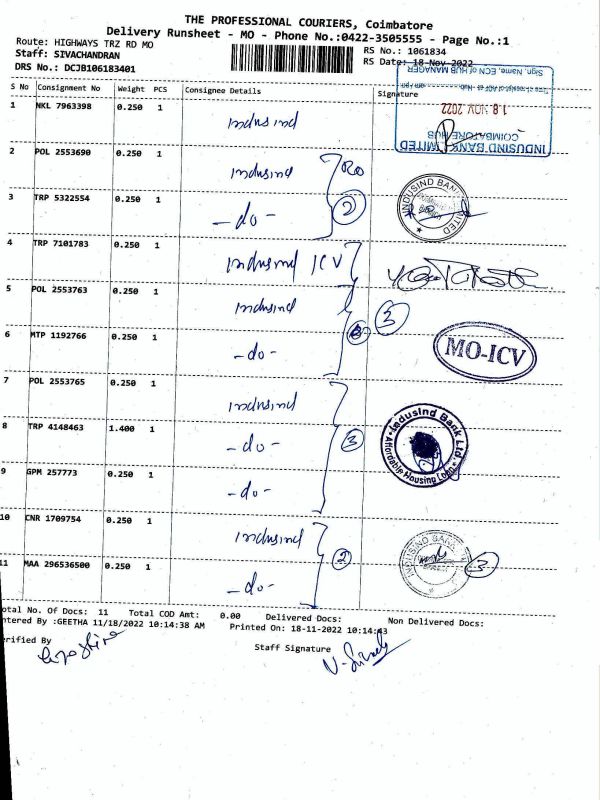 THE PROFESSIONAL COURIERS, Coimbatore
Delivery Runsheet - MO - Phone No.:0422-3505555 - Page No.:1
Route: HIGHWAYS TRZ RD MO
RS No.: 1061834
Staff: SIVACHANDRAN
RS Date: 18-Nov-2022
DRS No.: DCJB106183401
Sign, Name, ECN of HUB MANAGER
18 NOV 2022
COIMBATORE HUB
INDUSIND BANK LIMITED
S No Consignment No Weight PCS Consignee Details Signature
1 NKL 7963398 0.250 1 Indusind
2 POL 2553690 0.250 1 Indusind RO
3 TRP 5322554 0.250 1 -do- 2
INDUSIND BANK LIMITED
4 TRP 7101783 0.250 1 Indusind ICV
5 POL 2553763 0.250 1 Indusind 3
6 MTP 1192766 0.250 1 -do-
MO-ICV
7 POL 2553765 0.250 1 Indusind
8 TRP 4148463 1.400 1 -do- 3
IndusInd Bank Ltd.
Affordable Housing Loan
9 GPM 257773 0.250 1 -do-
10 CNR 1709754 0.250 1 Indusind
INDUSIND BANK
11 MAA 296536500 0.250 1 -do- 2 3
otal No. Of Docs: 11 Total COD Amt: 0.00 Delivered Docs: Non Delivered Docs:
ntered By :GEETHA 11/18/2022 10:14:38 AM Printed On: 18-11-2022 10:14:43
erified By
Staff Signature